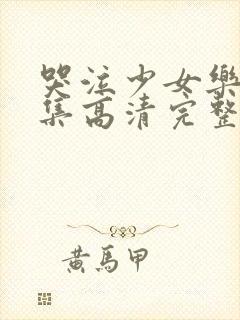 哭泣少女樂
集高清完整
黄馬甲